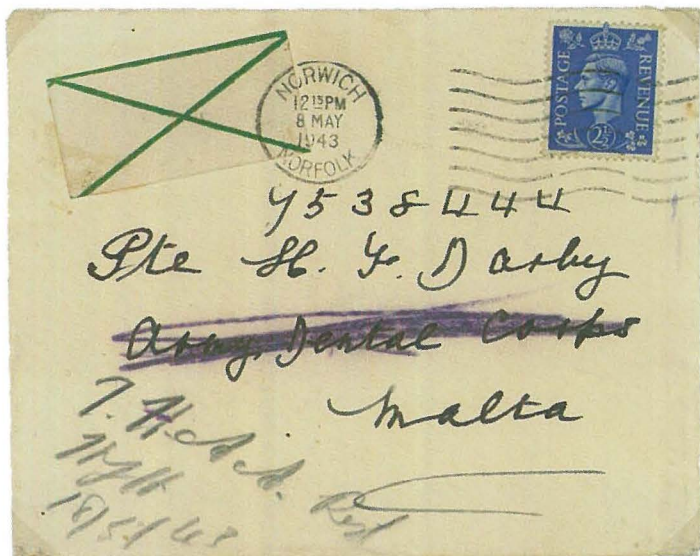 NORWICH
12 15 PM
8 MAY
1943
NORFOLK
POSTAGE
REVENUE
2½
7538444
Pte H. F. Darby
Army Dental Corps
Malta
7. H.A.A. Regt
18/5/43